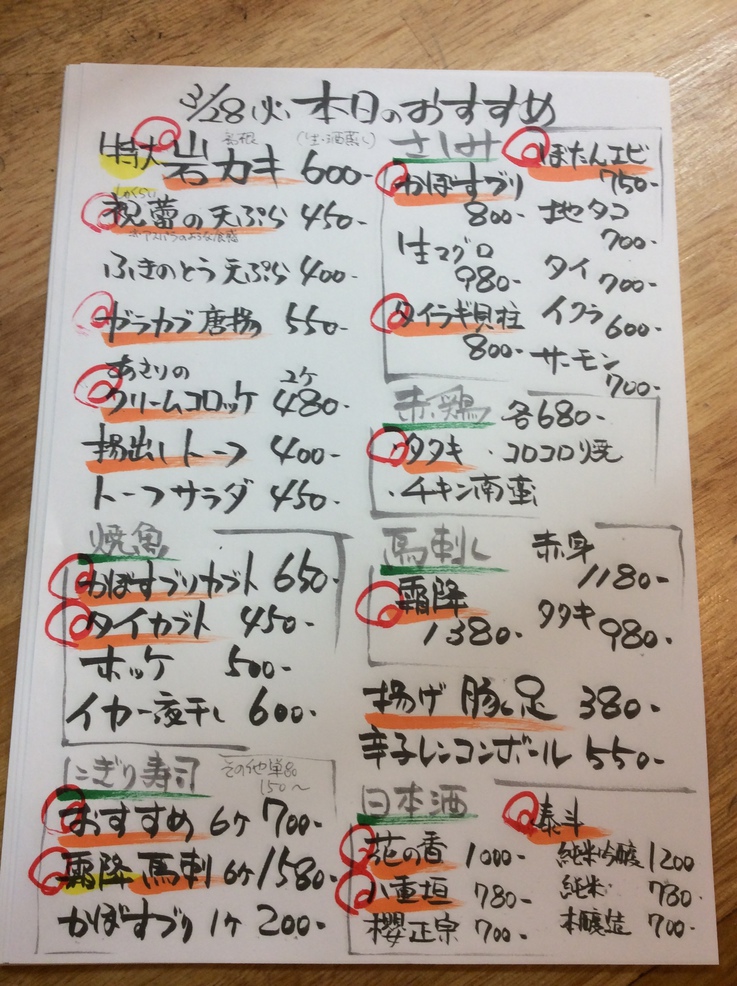 3/28(火) 本日のおすすめ
(生・酒蒸し)
特大岩カキ 600-
祝蕾の天ぷら 450-
ふきのとう天ぷら 400-
ガラカブ唐揚 550-
あさりの 2ケ
クリームコロッケ 480-
揚出しトーフ 400-
トーフサラダ 450-
焼魚
かぼすブリカブト 650-
タイカブト 450-
ホッケ 500-
イカ一夜干し 600-
にぎり寿司
150~
おすすめ 6ケ 700-
霜降馬刺 6ケ 1580-
かぼすブリ 1ケ 200-
さしみ
かぼすブリ
800-
生マグロ
980-
タイラギ貝柱
800-
ぼたんエビ
750-
地タコ
700-
タイ 700-
イクラ 600-
サーモン
700-
赤鶏 各680-
・タタキ ・コロコロ焼
・チキン南蛮
馬刺し
霜降
1380-
赤身
1180-
タタキ 980-
揚げ豚足 380-
辛子レンコンボール 550-
日本酒
花の香 1000-
八重垣 780-
櫻正宗 700-
泰斗
純米吟醸 1200
純米 780-
本醸造 700-